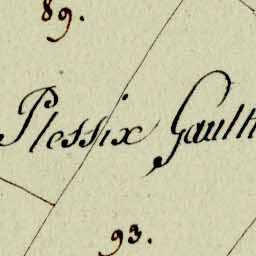 89.
Plessix Gault
93.